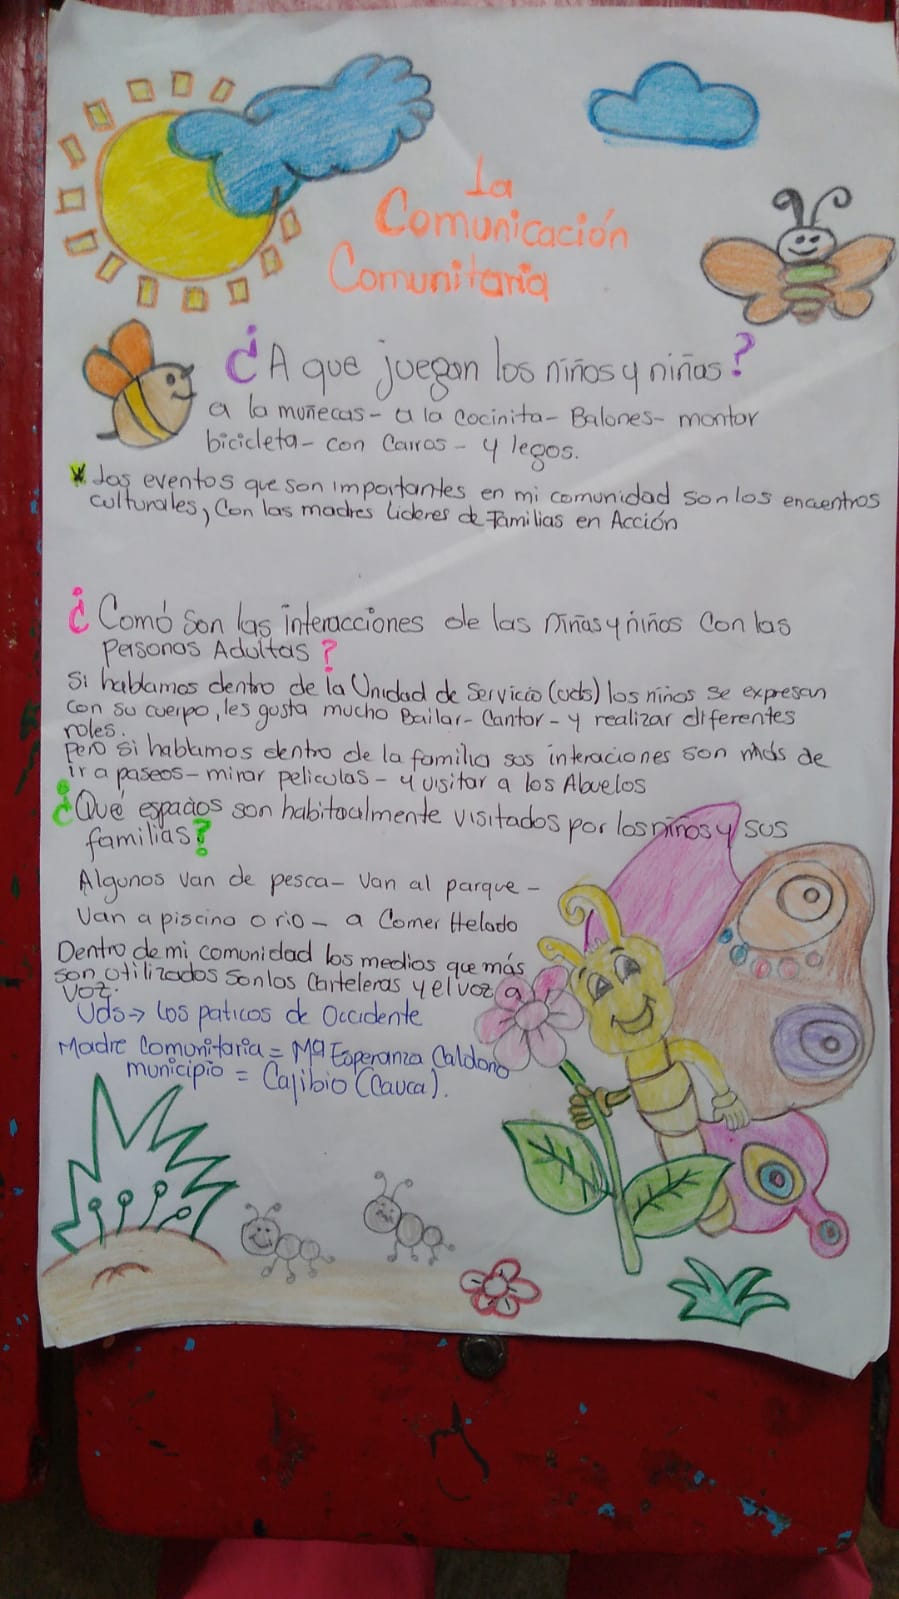 La
Comunicación
Comunitaria
¿A que juegan los niños y niñas?
a la muñecas - a la cocinita - Balones - montar
bicicleta - con Carros - y legos.
* Los eventos que son importantes en mi comunidad son los encuentros
culturales, con las madres Lideres de Familias en Acción
¿Comó son las interacciones de las niñas y niños con las
personas Adultas?
Si hablamos dentro de la Unidad de Servicio (uds) los niños se expresan
con su cuerpo, les gusta mucho Bailar - Cantar - y realizar diferentes
roles.
pero si hablamos dentro de la familia sus interaciones son más de
ir a paseos - mirar peliculas - y visitar a los Abuelos
¿Qué espacios son habitualmente visitados por los niños y sus
familias?
Algunos van de pesca - Van al parque -
Van a piscina o rio - a Comer Helado
Dentro de mi comunidad los medios que más
son utilizados son los Carteleras y el voz a
voz.
Uds → Los paticos de Occidente
Madre Comunitaria = Mª Esperanza Caldono
municipio = Cajibio (Cauca).